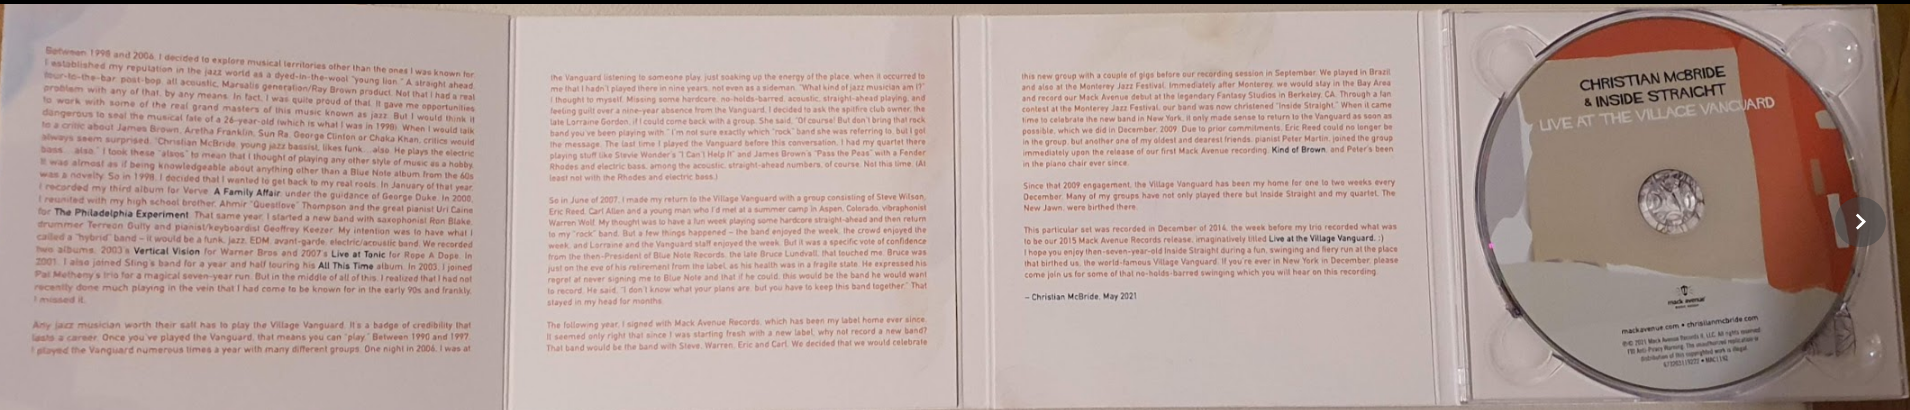 Between 1998 and 2006, I decided to explore musical territories other than the ones I was known for.
I established my reputation in the jazz world as a dyed-in-the-wool "young lion." A straight ahead,
four-to-the-bar, post-bop, all acoustic, Marsalis generation/Ray Brown product. Not that I had a real
problem with any of that, by any means. In fact, I was quite proud of that. It gave me opportunities
to work with some of the real grand masters of this music known as jazz. But I would think it
dangerous to seal the musical fate of a 26-year-old (which is what I was in 1998). When I would talk
to a critic about James Brown, Aretha Franklin, Sun Ra, George Clinton or Chaka Khan, critics would
always seem surprised. "Christian McBride, young jazz bassist, likes funk... also. He plays the electric
bass... also." I took these "alsos" to mean that I thought of playing any other style of music as a hobby.
It was almost as if being knowledgeable about anything other than a Blue Note album from the 60s
was a novelty. So in 1998, I decided that I wanted to get back to my real roots. In January of that year,
I recorded my third album for Verve, A Family Affair, under the guidance of George Duke. In 2000,
I reunited with my high school brother, Ahmir "Questlove" Thompson and the great pianist Uri Caine
for The Philadelphia Experiment. That same year, I started a new band with saxophonist Ron Blake,
drummer Terreon Gully and pianist/keyboardist Geoffrey Keezer. My intention was to have what I
called a "hybrid" band – it would be a funk, jazz, EDM, avant-garde, electric/acoustic band. We recorded
two albums, 2003's Vertical Vision for Warner Bros and 2007's Live at Tonic for Rope A Dope. In
2001, I also joined Sting's band for a year and half touring his All This Time album. In 2003, I joined
Pat Metheny's trio for a magical seven-year run. But in the middle of all of this, I realized that I had not
recently done much playing in the vein that I had come to be known for in the early 90s and frankly,
I missed it.
Any jazz musician worth their salt has to play the Village Vanguard. It's a badge of credibility that
lasts a career. Once you've played the Vanguard, that means you can "play." Between 1990 and 1997,
I played the Vanguard numerous times a year with many different groups. One night in 2006, I was at
the Vanguard listening to someone play, just soaking up the energy of the place, when it occurred to
me that I hadn't played there in nine years, not even as a sideman. "What kind of jazz musician am I?"
I thought to myself. Missing some hardcore, no-holds-barred, acoustic, straight-ahead playing, and
feeling guilt over a nine-year absence from the Vanguard, I decided to ask the spitfire club owner, the
late Lorraine Gordon, if I could come back with a group. She said, "Of course! But don't bring that rock
band you've been playing with." I'm not sure exactly which "rock" band she was referring to, but I got
the message. The last time I played the Vanguard before this conversation, I had my quartet there
playing stuff like Stevie Wonder's "I Can't Help It" and James Brown's "Pass the Peas" with a Fender
Rhodes and electric bass, among the acoustic, straight-ahead numbers, of course. Not this time. (At
least not with the Rhodes and electric bass.)
So in June of 2007, I made my return to the Village Vanguard with a group consisting of Steve Wilson,
Eric Reed, Carl Allen and a young man who I'd met at a summer camp in Aspen, Colorado, vibraphonist
Warren Wolf. My thought was to have a fun week playing some hardcore straight-ahead and then return
to my "rock" band. But a few things happened – the band enjoyed the week, the crowd enjoyed the
week, and Lorraine and the Vanguard staff enjoyed the week. But it was a specific vote of confidence
from the then-President of Blue Note Records, the late Bruce Lundvall, that touched me. Bruce was
just on the eve of his retirement from the label, as his health was in a fragile state. He expressed his
regret at never signing me to Blue Note and that if he could, this would be the band he would want
to record. He said, "I don't know what your plans are, but you have to keep this band together." That
stayed in my head for months.
The following year, I signed with Mack Avenue Records, which has been my label home ever since.
It seemed only right that since I was starting fresh with a new label, why not record a new band?
That band would be the band with Steve, Warren, Eric and Carl. We decided that we would celebrate
this new group with a couple of gigs before our recording session in September. We played in Brazil
and also at the Monterey Jazz Festival. Immediately after Monterey, we would stay in the Bay Area
and record our Mack Avenue debut at the legendary Fantasy Studios in Berkeley, CA. Through a fan
contest at the Monterey Jazz Festival, our band was now christened "Inside Straight." When it came
time to celebrate the new band in New York, it only made sense to return to the Vanguard as soon as
possible, which we did in December, 2009. Due to prior commitments, Eric Reed could no longer be
in the group, but another one of my oldest and dearest friends, pianist Peter Martin, joined the group
immediately upon the release of our first Mack Avenue recording, Kind of Brown, and Peter's been
in the piano chair ever since.
Since that 2009 engagement, the Village Vanguard has been my home for one to two weeks every
December. Many of my groups have not only played there but Inside Straight and my quartet, The
New Jawn, were birthed there.
This particular set was recorded in December of 2014, the week before my trio recorded what was
to be our 2015 Mack Avenue Records release, imaginatively titled Live at the Village Vanguard. :)
I hope you enjoy then-seven-year-old Inside Straight during a fun, swinging and fiery run at the place
that birthed us, the world-famous Village Vanguard. If you're ever in New York in December, please
come join us for some of that no-holds-barred swinging which you will hear on this recording.
– Christian McBride, May 2021
CHRISTIAN McBRIDE
& INSIDE STRAIGHT
LIVE AT THE VILLAGE VANGUARD
mack avenue
mackavenue.com • christianmcbride.com
℗© 2021 Mack Avenue Records II, LLC. All rights reserved.
FBI Anti-Piracy Warning: The unauthorized reproduction or
distribution of this copyrighted work is illegal.